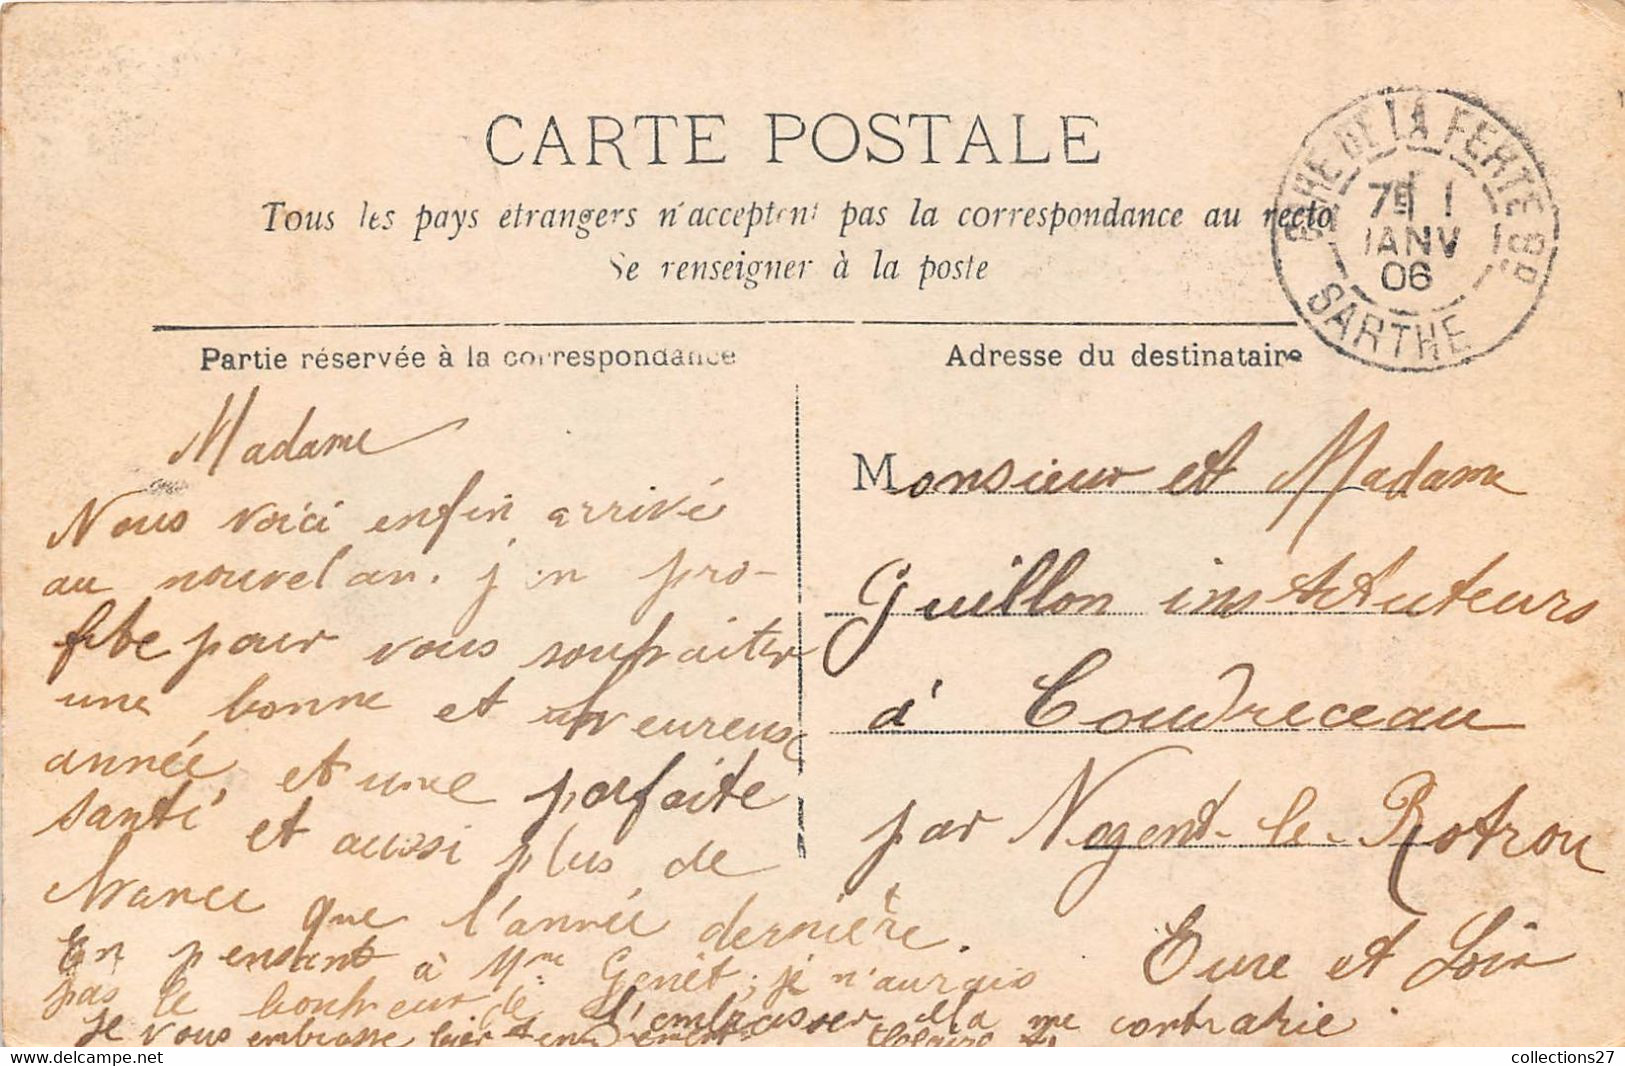 CARTE POSTALE
Tous les pays étrangers n'acceptent pas la correspondance au recto
Se renseigner à la poste
LA FERTÉ
7E 1
JANV
06
SARTHE
Partie réservée à la correspondance
Adresse du destinataire
Madame
Nous voici enfin arrivé
au nouvel an. j'en pro-
fite pour vous souhaiter
une bonne et heureuse
année et une parfaite
santé et aussi plus de
chance que l'année dernière.
En pensant à Mme Genêt, je n'aurais
pas le bonheur de l'embrasser cela me contrarie.
Je vous embrasse bien
Monsieur et Madame
Guillon instituteurs
à Coudreceau
par Nogent-le-Rotrou
Eure et Loir
collections27